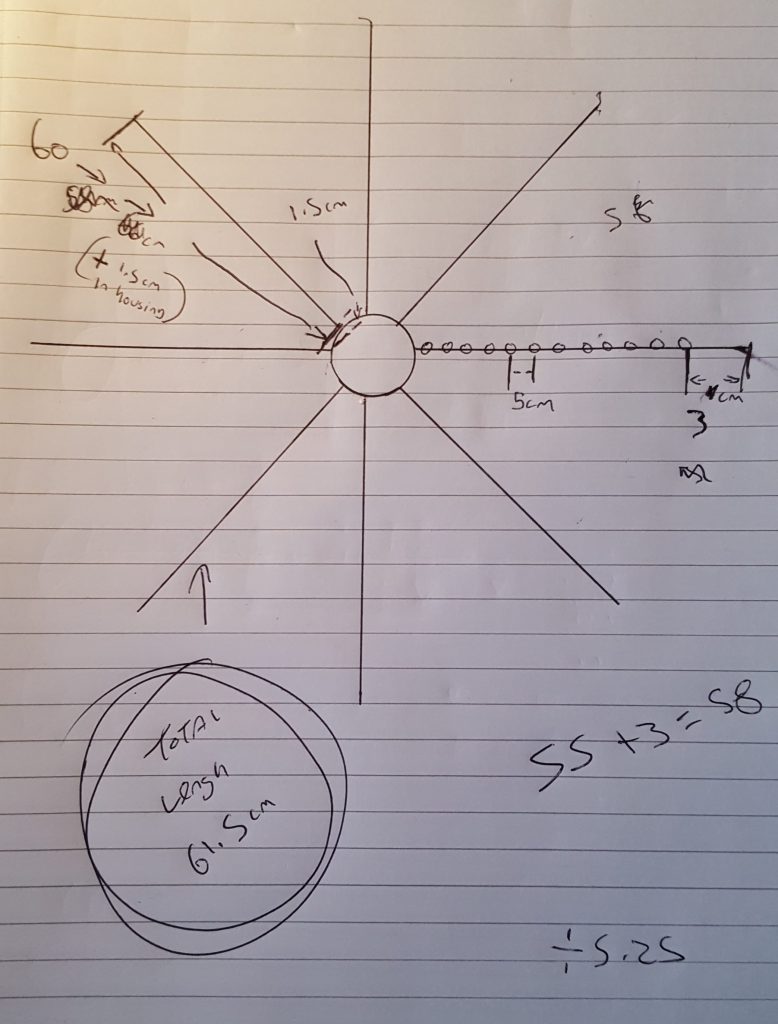 60
1.5cm
58
cm
(+ 1.5cm
in housing)
5cm
cm
3
TOTAL
Lengh
61.5cm
55 + 3 = 58
÷ 5.25